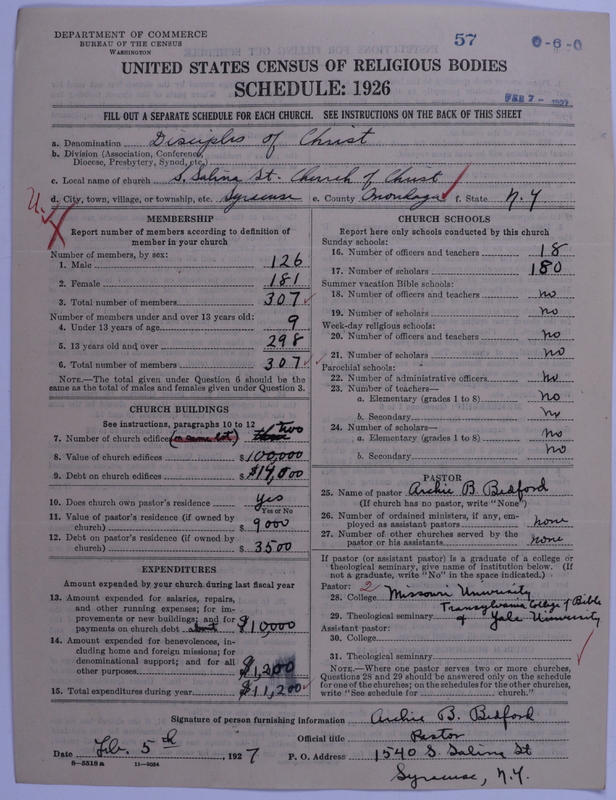 DEPARTMENT OF COMMERCE
BUREAU OF THE CENSUS
WASHINGTON
57
0-6-0
UNITED STATES CENSUS OF RELIGIOUS BODIES
SCHEDULE: 1926
FEB 7 - 1927
FILL OUT A SEPARATE SCHEDULE FOR EACH CHURCH. SEE INSTRUCTIONS ON THE BACK OF THIS SHEET
a. Denomination Disciples of Christ
b. Division (Association, Conference, Diocese, Presbytery, Synod, etc.)
c. Local name of church S. Salina St. Church of Christ
d. City, town, village, or township, etc. Syracuse e. County Onondaga f. State N. Y
MEMBERSHIP
Report number of members according to definition of
member in your church
Number of members, by sex:
1. Male 126
2. Female 181
3. Total number of members 307
Number of members under and over 13 years old:
4. Under 13 years of age 9
5. 13 years old and over 298
6. Total number of members 307
NOTE.—The total given under Question 6 should be
same as the total of males and females given under Question 3.
CHURCH BUILDINGS
See instructions, paragraphs 10 to 12
7. Number of church edifices (on same lot) two
8. Value of church edifices $100,000
9. Debt on church edifices $14,000
10. Does church own pastor's residence yes
Yes or No
11. Value of pastor's residence (if owned by
church) $ 9000
12. Debt on pastor's residence (if owned by
church) $ 3500
EXPENDITURES
Amount expended by your church during last fiscal year
13. Amount expended for salaries, repairs,
and other running expenses; for im-
provements or new buildings; and for
payments on church debt $10,000
14. Amount expended for benevolences, in-
cluding home and foreign missions; for
denominational support; and for all
other purposes $1,200
15. Total expenditures during year $11,200
CHURCH SCHOOLS
Report here only schools conducted by this church
Sunday schools:
16. Number of officers and teachers 18
17. Number of scholars 180
Summer vacation Bible schools:
18. Number of officers and teachers no
19. Number of scholars no
Week-day religious schools:
20. Number of officers and teachers no
21. Number of scholars no
Parochial schools:
22. Number of administrative officers no
23. Number of teachers—
a. Elementary (grades 1 to 8) no
b. Secondary no
24. Number of scholars—
a. Elementary (grades 1 to 8) no
b. Secondary no
PASTOR
25. Name of pastor Archie B. Bedford
(If church has no pastor, write "None")
26. Number of ordained ministers, if any, em-
ployed as assistant pastors none
27. Number of other churches served by the
pastor or his assistants none
If pastor (or assistant pastor) is a graduate of a college or
theological seminary, give name of institution below. (If
not a graduate, write "No" in the space indicated.)
Pastor: 2
28. College Missouri University
29. Theological seminary Transylvania College of Bible
& Yale University
Assistant pastor:
30. College
31. Theological seminary
NOTE.—Where one pastor serves two or more churches,
Questions 28 and 29 should be answered only on the schedule
for one of the churches; on the schedules for the other churches,
write "See schedule for church."
Signature of person furnishing information Archie B. Bedford
Official title Pastor
Date Feb. 5th, 1927 P. O. Address 1540 S. Salina St
8-5518a 11-9034
Syracuse, N.Y.